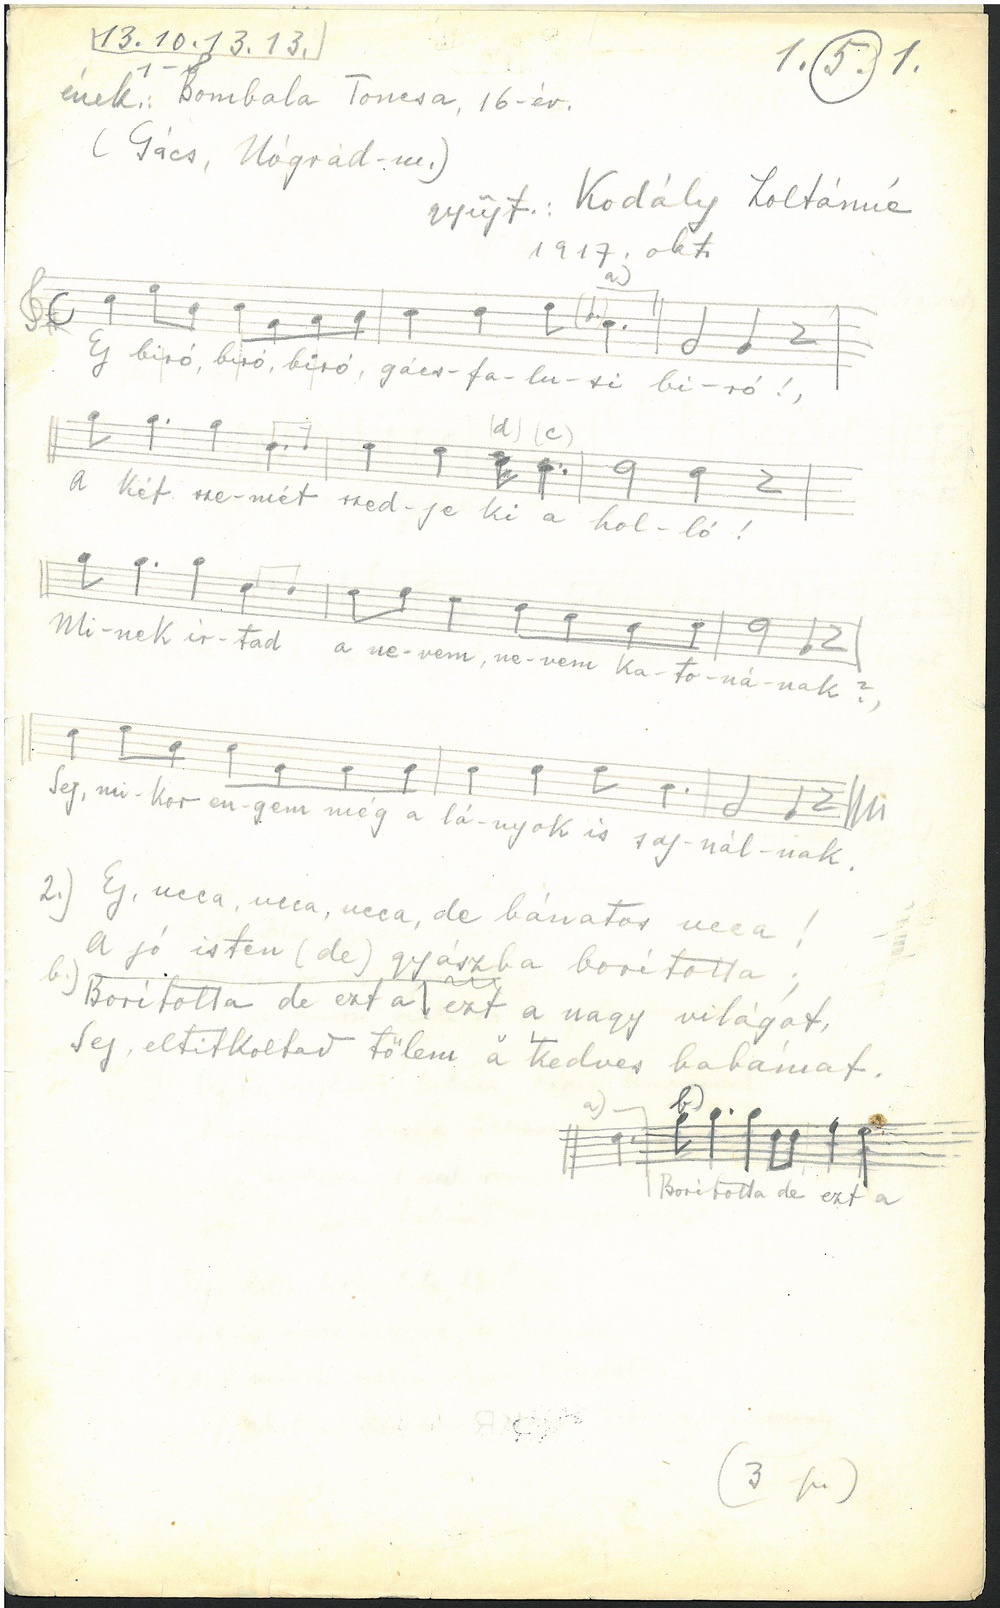 13. 10. 13. 13.
1. 5. 1.
1-8
ének.: Bombala Toncsa, 16-év.
(Gács, Nógrád-m.)
gyűjt.: Kodály Zoltánné
1917. okt.
a)
(b.)
Ej biró, biró, biró, gács-fa-lu-si bi-ró!,
(d) (c)
A két sze-mét szed-je ki a hol-ló!
Mi-nek ir-tad a ne-vem, ne-vem ka-to-ná-nak?,
Sej, mi-kor en-gem még a lá-nyok is saj-nál-nak.
2.) Ej, ucca, ucca, ucca, de bánatos ucca!
A jó isten (de) gyászba borította;
b.) Borította de ezt a ezt a nagy világot,
Sej, eltitkoltad tőlem a kedves babámat.
a) b)
Borította de ezt a
(3 p.)